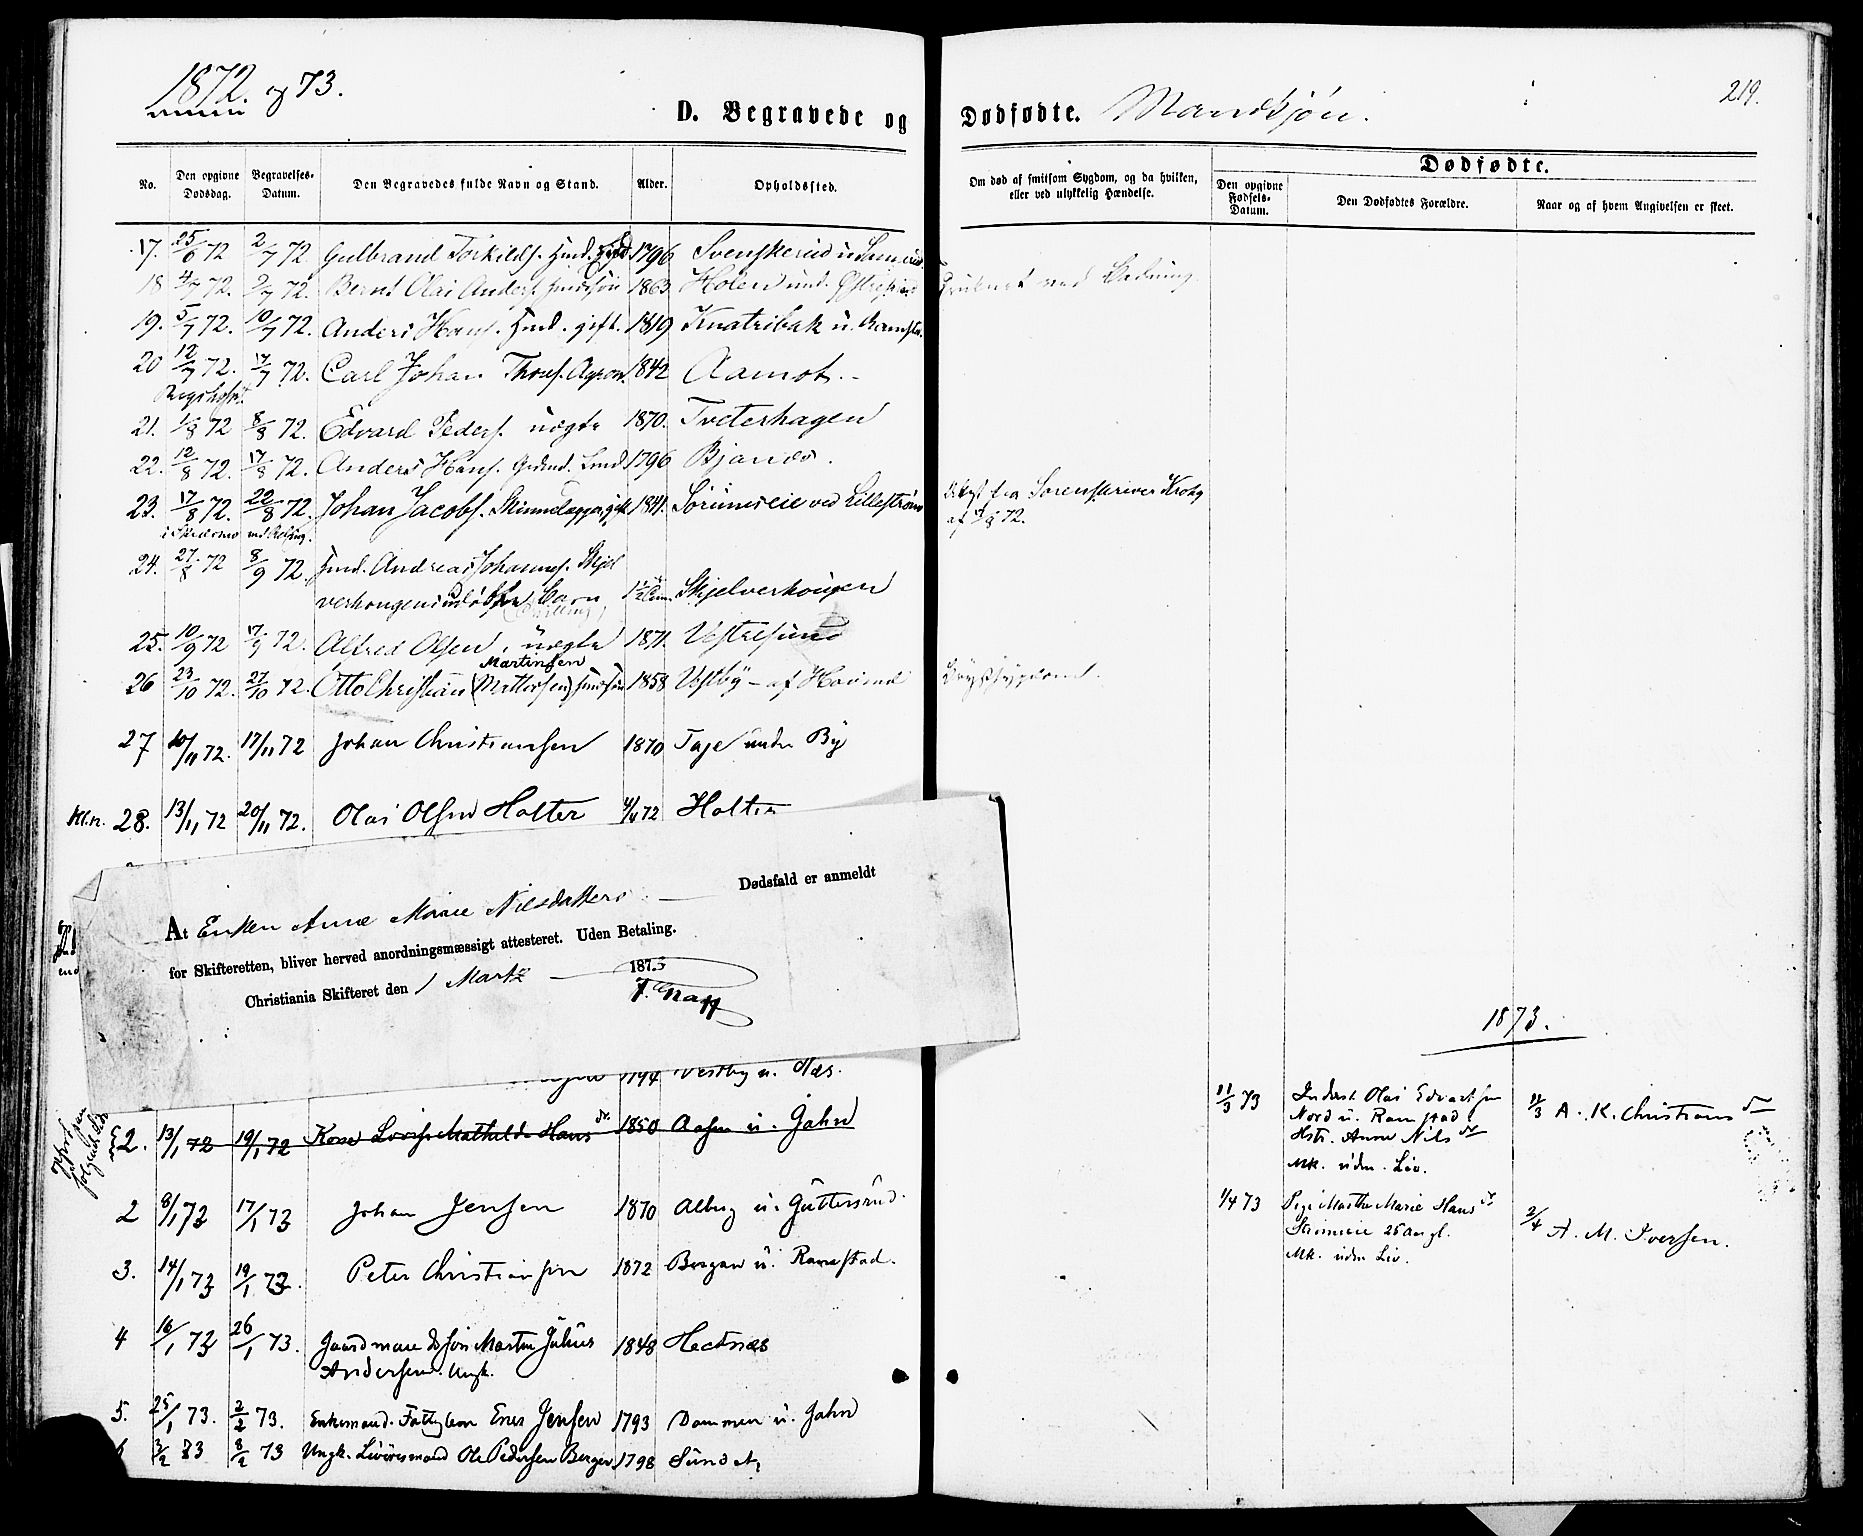 1872 og 73.
D. Begravede og Dødfødte. Mandkjön.
219.
No.
Den opgivne Dødsdag.
Begravelses-Datum.
Den Begravedes fulde Navn og Stand.
Alder.
Opholdssted.
Om død af smitsom Sygdom, og da hvilken, eller ved ulykkelig Hændelse.
Dødfødte.
Den opgivne Fødsels-Datum.
Den Dødfødtes Forældre.
Naar og af hvem Angivelsen er skeet.
17. 25/6 72 2/7 72. Gulbrand Torkilds. Hmd. 1796 Svenskerud u.
18 4/7 72. 9/7 72. Bernt Olai Anders. 1863 Holen und. ved Badning.
19. 5/7 72. 10/7 72. Anders Hans. Hmd. gift. 1819 Knatribak u.
20 12/7 72. 17/7 72. Carl Johan Thors. Agron. 1842 Aamot.
Rigshosp.
21. 1/8 72 8/8 72. Edvard Peders. uægte 1870. Tveterhagen
22. 12/8 72. 17/8 72. Anders Hans. 1796 Bjanæs.
23. 17/8 72. 22/8 72. Johan Jacobs. gift 1841. Sörumseie ved Lilleström fra Sorenskriver Krohg
af 72.
24. 27/8 72 8/9 72. Hmd. Andreas Johannes. Skjel
verhougens udöbte Barn Skjelverhougen
25. 10/9 72 17/9 72. Alfred Olsen, uægte 1871. Vestresund
Martinsen
26 23/10 72. 27/10 72. Otto Christian 1858 Vestby - af
27 10/11 72. 17/11 72 Johan Christiansen 1870 Taje under By
28. 13/11 72 20/11 72. Olai Olsen Holter 4/11 72 Holter
At Enken Anne Marie Nilsdatters Dødsfald er anmeldt
for Skifteretten, bliver herved anordningsmæssigt attesteret. Uden Betaling.
Christiania Skifteret den 1 Marts 1873
1794 Vestby u. Næs.
1873.
2. 13/1 72 19/1 72 Lovise Mathilde Hans dr. 1850 Aasen u. Jahn
11/3 73 Inderst Olai Edvardsen
Nord u. Ramstad
Hstr. Anne Nils dr
Mk. uden Liv.
11/3 A. K. Christians dr
2 8/1 73 17/1 73 Johan Jensen 1870 Alberg u. Guttersrud.
1/4 73 Pige Marthe Marie Hans dr
25 Aar gl.
Mk. uden Liv.
2/4 A. M. Iversen.
3. 14/1 73 19/1 73. Peter Christiansen 1872 Bergan u. Ramstad.
4 16/1 73 26/1 73. Gaardmands søn Martin Julius 1848 Hectnæs
Andersen. Ungk.
5. 25/1 73. 2/2 73. Enkemand. Fattiglem Ener Jensen 1793 Dammen u. Jahn
6 3/2 73 8/2 73 Ungk. Ole Pedersen Berger. 1798 Sundet,